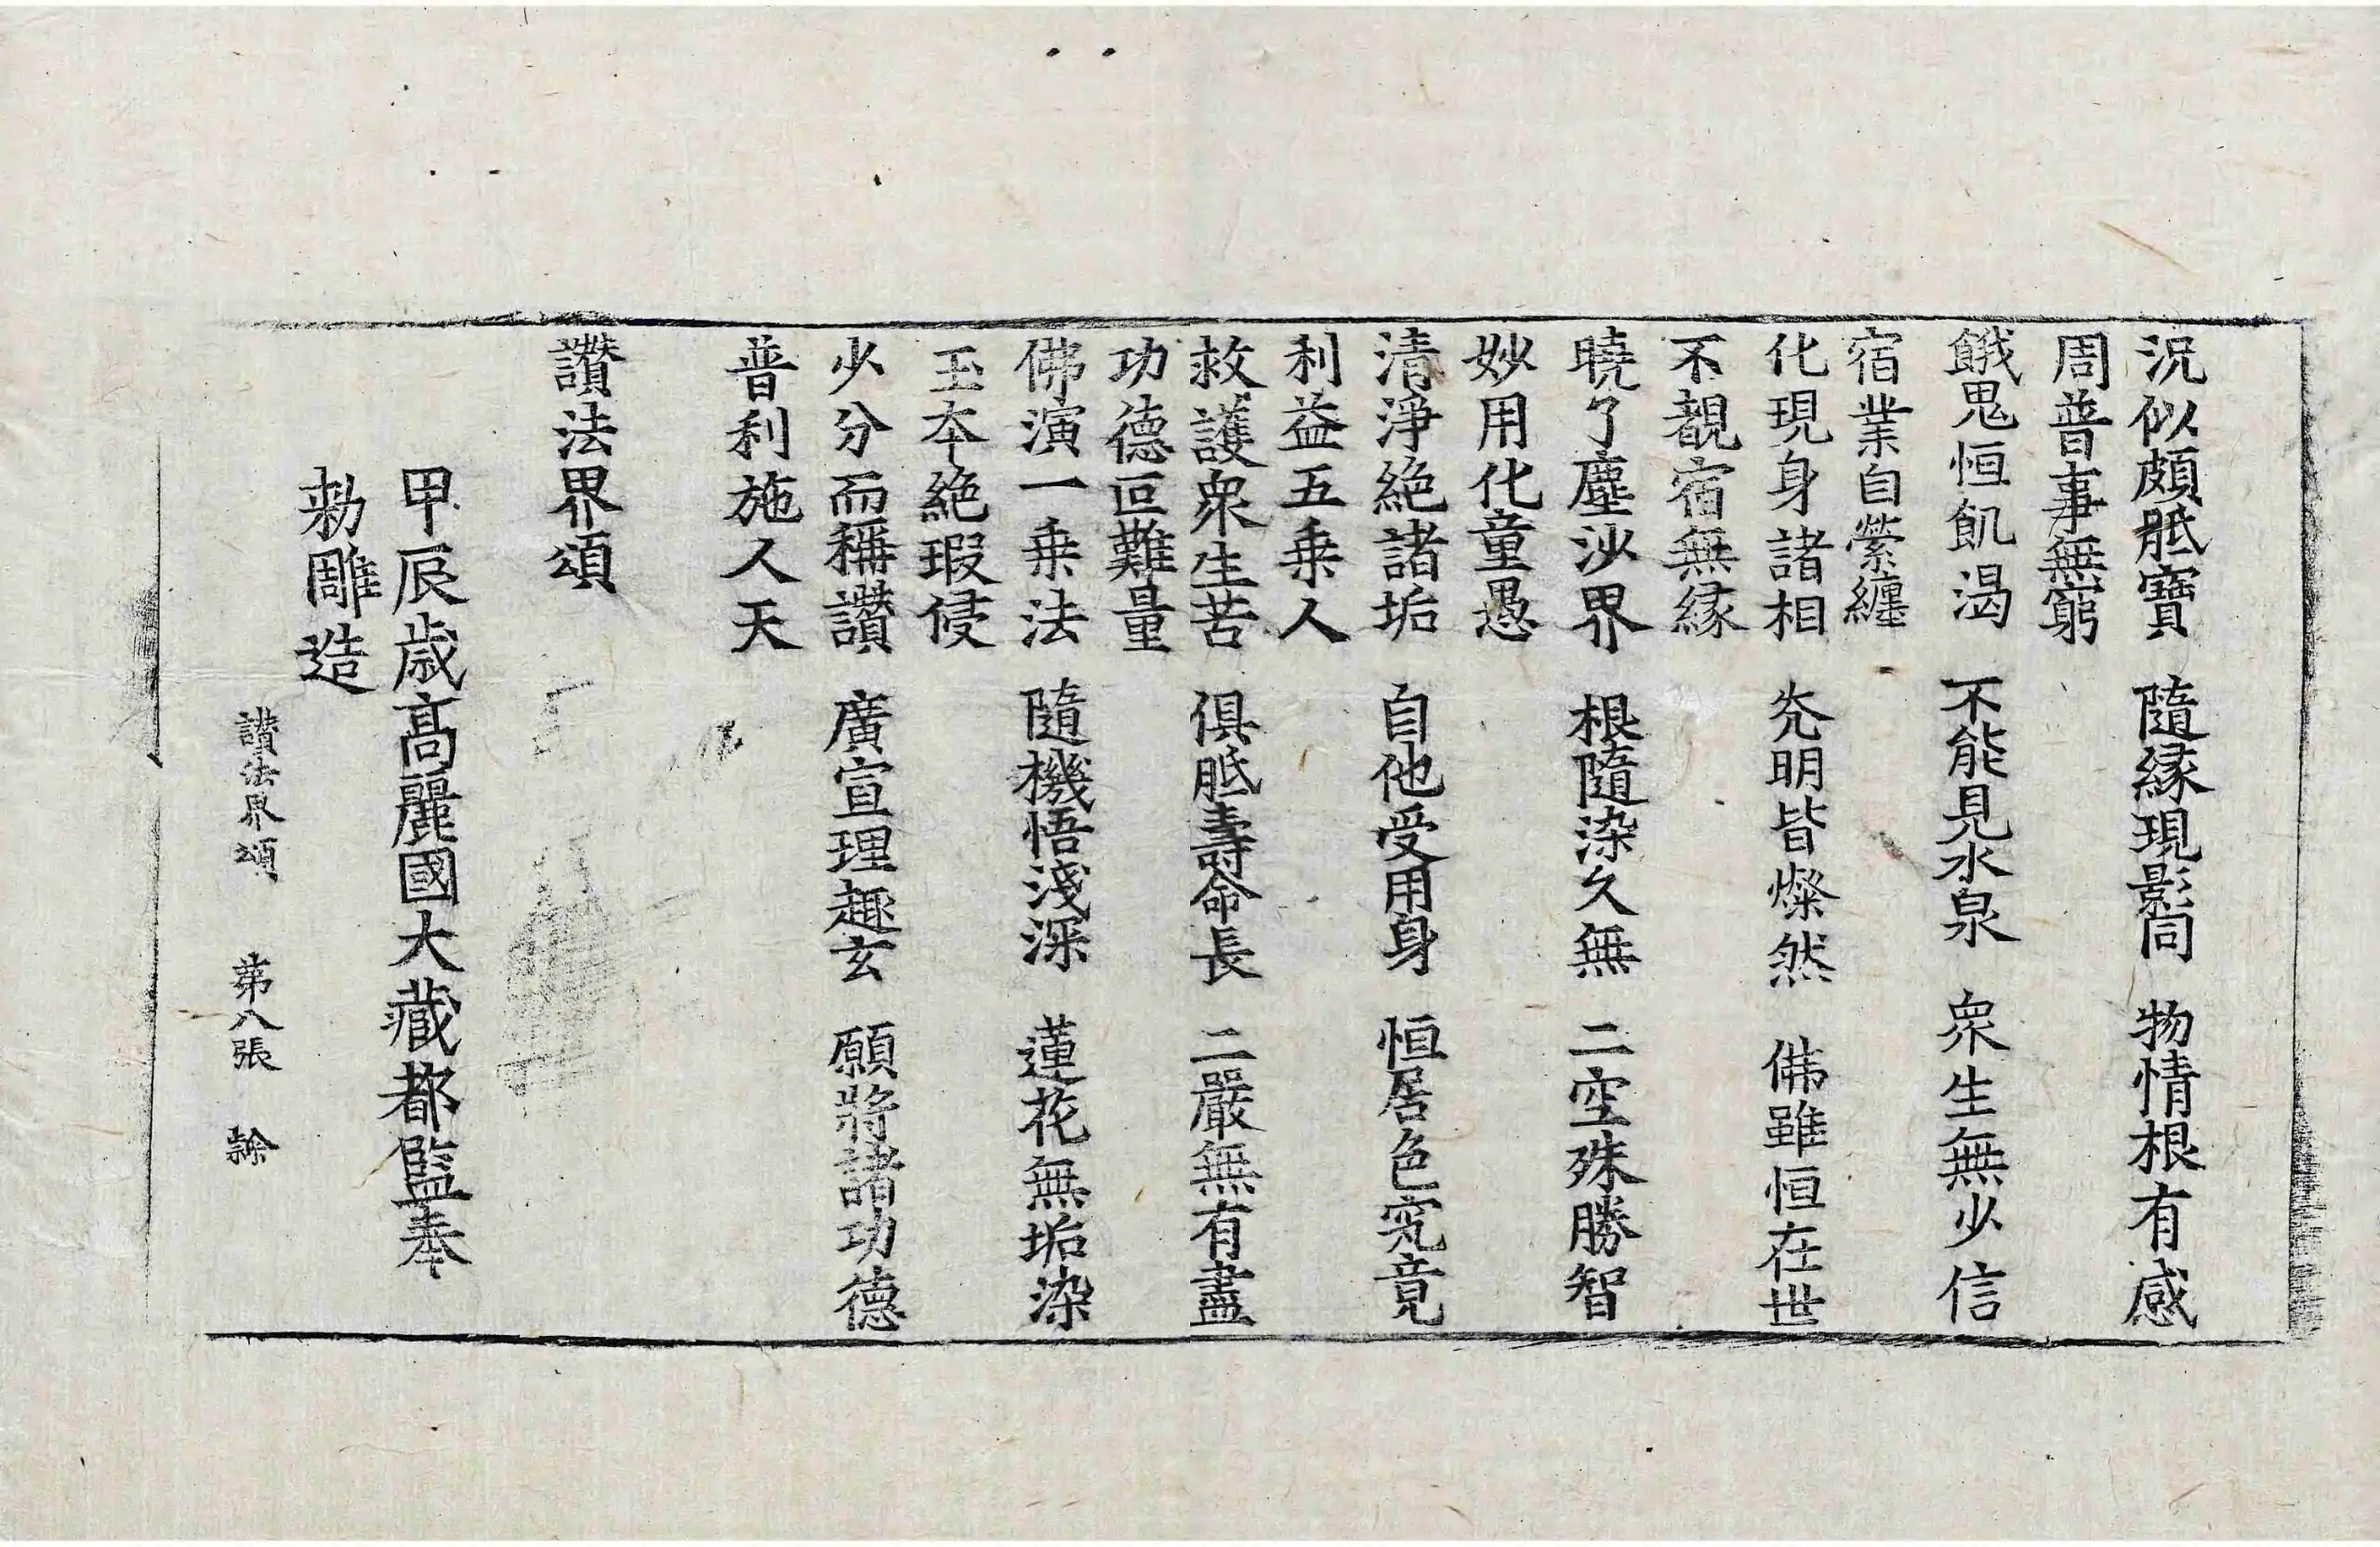 況似頗胝寶　隨縁現影同　物情根有感
周普事無窮
餓鬼恒飢渴　不能見水泉　衆生無少信
宿業自縈纏
化現身諸相　光明皆燦然　佛雖恒在世
不覩宿無縁
曉了塵沙界　根隨染久無　二空殊勝智
妙用化童愚
清淨絶諸垢　自他受用身　恒居色究竟
利益五乗人
救護衆生苦　俱胝壽命長　二嚴無有盡
功德叵難量
佛演一乗法　隨機悟淺深　蓮花無垢染
玉本絶瑕侵
少分而稱讚　廣宣理趣玄　願將諸功德
普利施人天
讚法界頌
甲辰歲高麗國大藏都監奉
勑雕造
讃法界頌　第八張